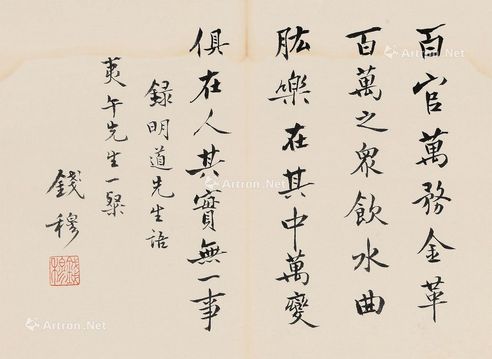 百官萬務金革
百萬之眾飲水曲
肱樂在其中萬變
俱在人其實無一事
錄明道先生語
夷午先生一粲
錢穆
錢穆
Artron.Net
Artron.Net
Artron.Net
Artron.Net
Artron.Net